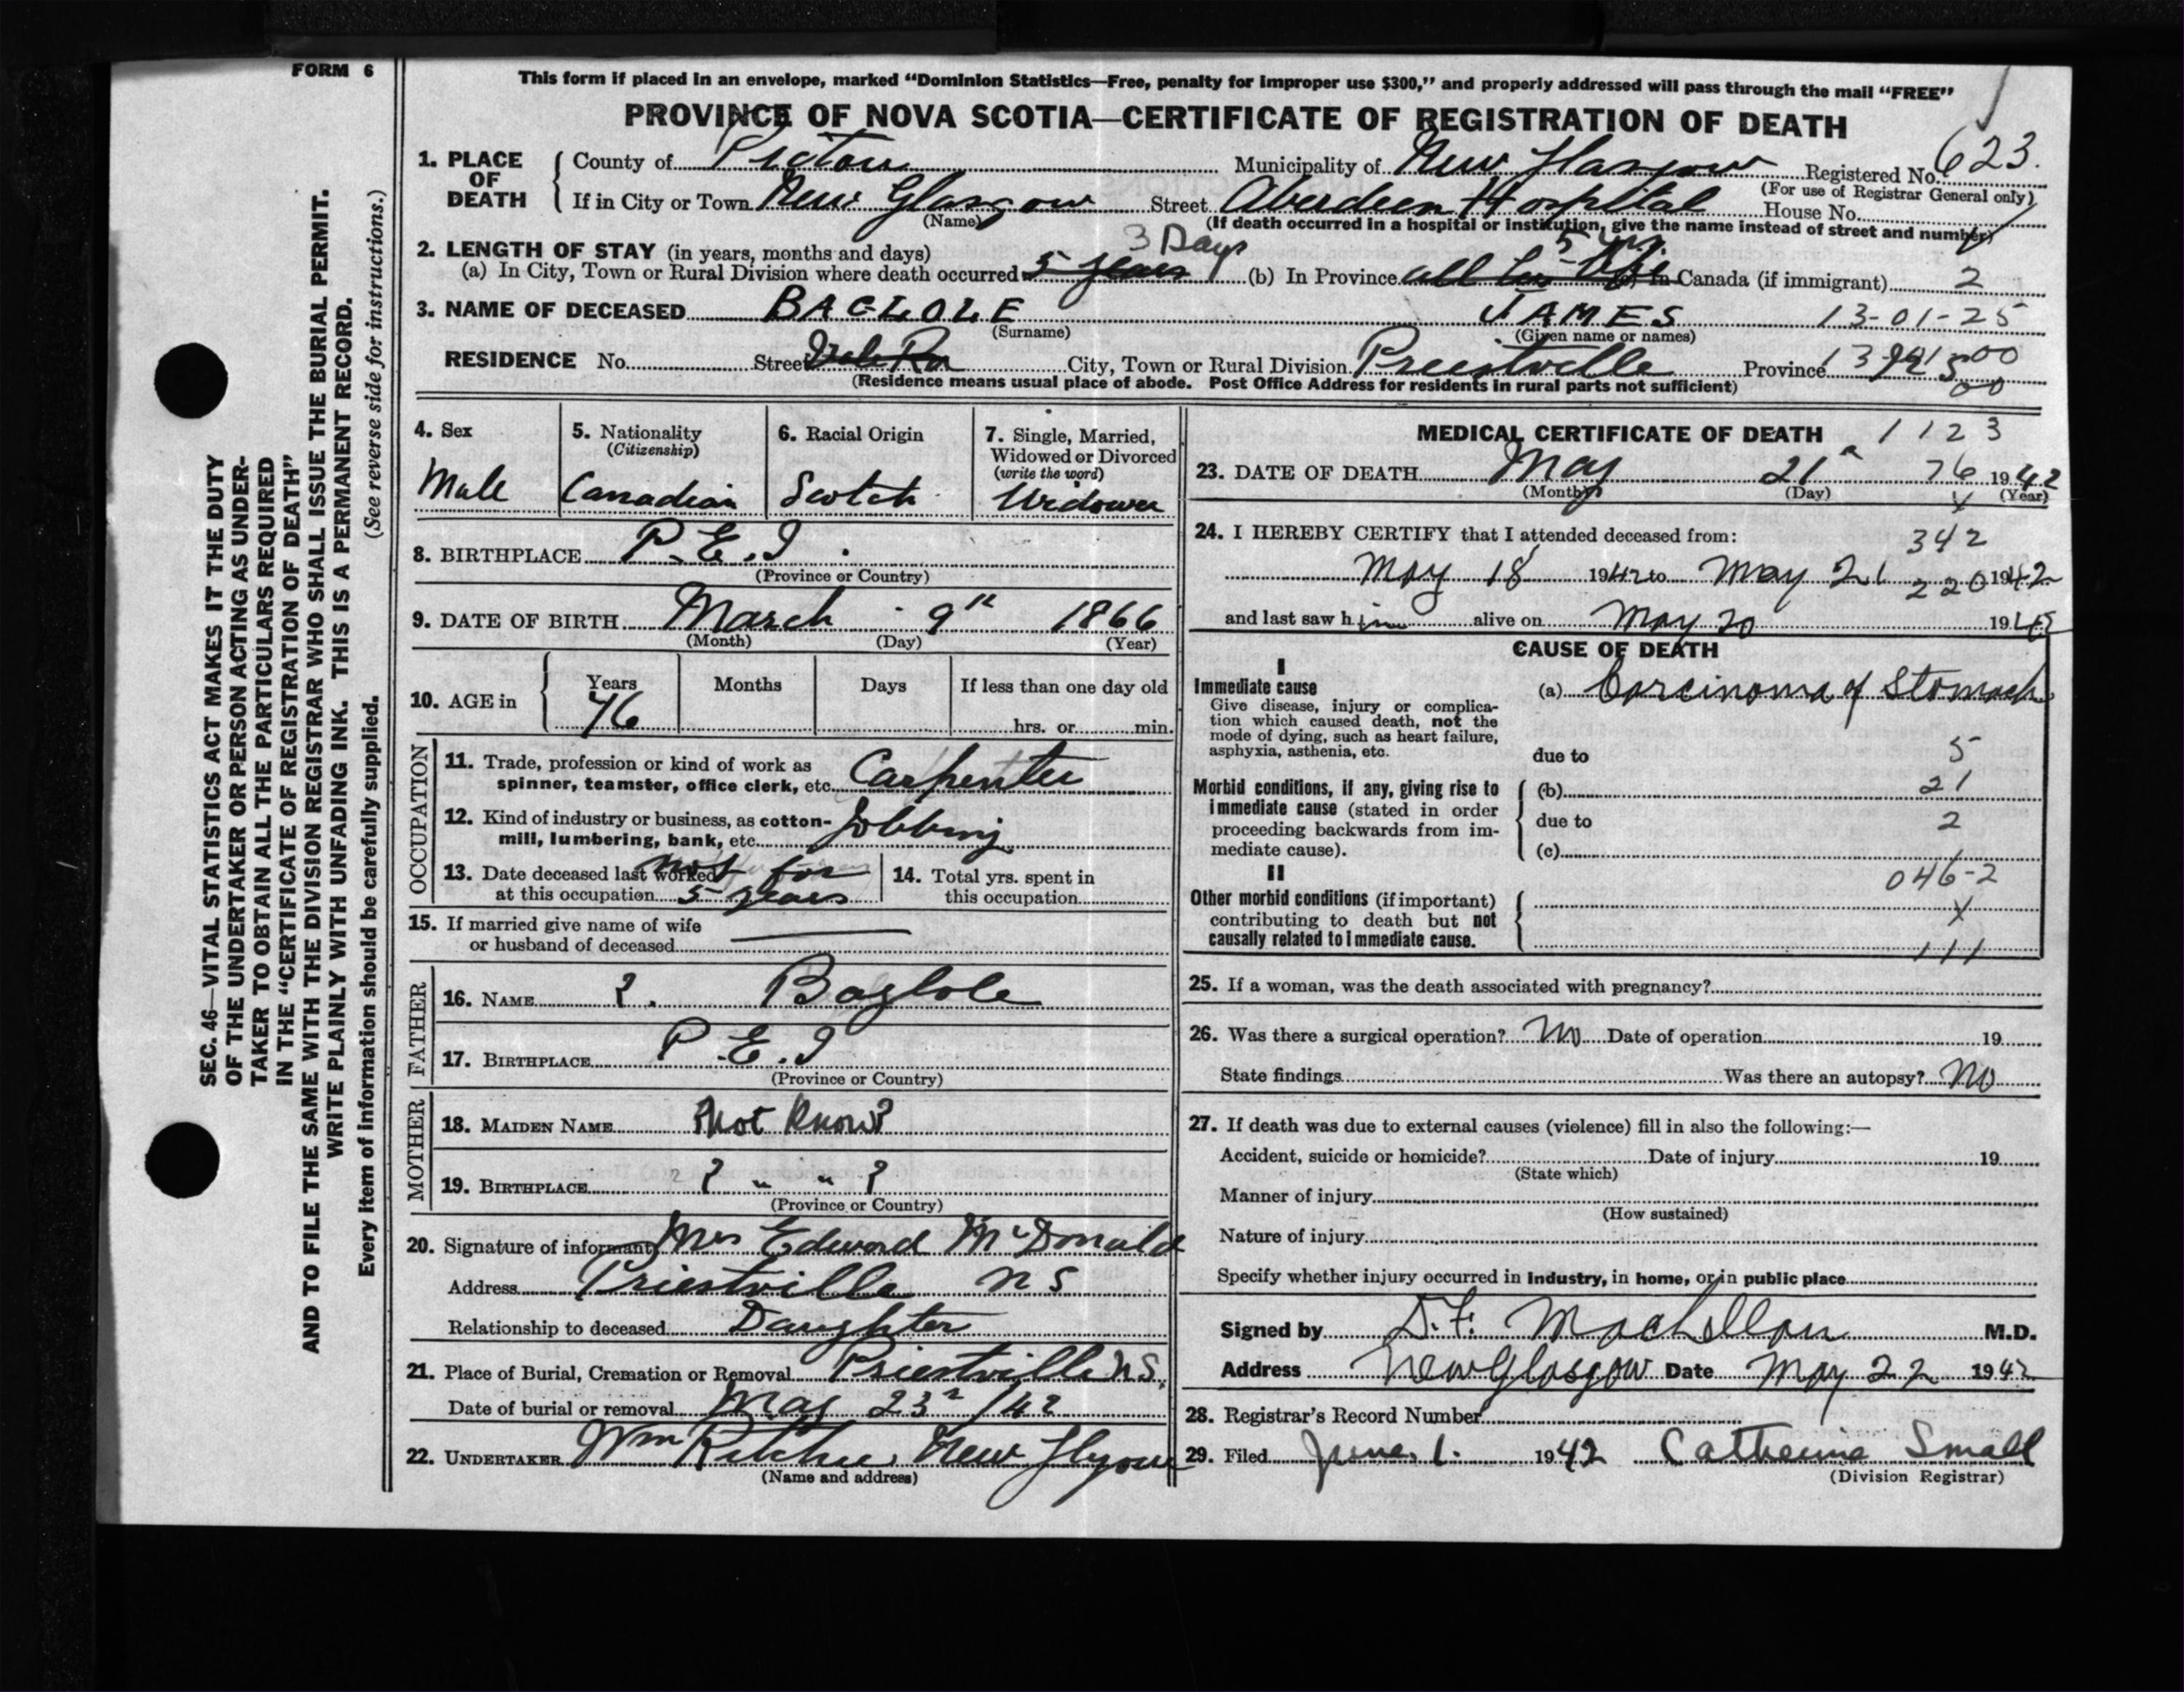 FORM 6
This form if placed in an envelope, marked “Dominion Statistics—Free, penalty for improper use $300,” and properly addressed will pass through the mail “FREE”
PROVINCE OF NOVA SCOTIA—CERTIFICATE OF REGISTRATION OF DEATH
1. PLACE OF DEATH
County of Pictou Municipality of New Glasgow Registered No. 623.
(For use of Registrar General only)
If in City or Town New Glasgow Street Aberdeen Hospital House No.
(Name) (If death occurred in a hospital or institution, give the name instead of street and number)
2. LENGTH OF STAY (in years, months and days) 3 Days 5 yrs
(a) In City, Town or Rural Division where death occurred 5 years (b) In Province all his life (c) In Canada (if immigrant) 2
3. NAME OF DECEASED BAGLOLE JAMES 13-01-25
(Surname) (Given name or names)
RESIDENCE No. Street City, Town or Rural Division Priestville Province
(Residence means usual place of abode. Post Office Address for residents in rural parts not sufficient) 00
4. Sex Male
5. Nationality (Citizenship) Canadian
6. Racial Origin Scotch
7. Single, Married, Widowed or Divorced (write the word) Widower
8. BIRTHPLACE P.E.I.
(Province or Country)
9. DATE OF BIRTH March 9th 1866
(Month) (Day) (Year)
10. AGE in Years Months Days If less than one day old
76 hrs. or min.
OCCUPATION
11. Trade, profession or kind of work as
spinner, teamster, office clerk, etc. Carpenter
12. Kind of industry or business, as cotton-
mill, lumbering, bank, etc. Jobbing
13. Date deceased last worked not for
at this occupation 5 years
14. Total yrs. spent in
this occupation
15. If married give name of wife
or husband of deceased
FATHER
16. NAME ?. Baglole
17. BIRTHPLACE P.E.I
(Province or Country)
MOTHER
18. MAIDEN NAME Not Know?
19. BIRTHPLACE ? " " ?
(Province or Country)
20. Signature of informant Mrs Edward McDonald
Address Priestville NS
Relationship to deceased Daughter
21. Place of Burial, Cremation or Removal Priestville N.S.
Date of burial or removal May 23rd /42
22. UNDERTAKER Wm Ritchie New Glasgow
(Name and address)
MEDICAL CERTIFICATE OF DEATH 1 1 2 3
23. DATE OF DEATH May 21 76 1942
(Month) (Day) (Year)
24. I HEREBY CERTIFY that I attended deceased from: 342
May 18 1942 to May 21 220 1942
and last saw him alive on May 20 1942
CAUSE OF DEATH
I
Immediate cause (a) Carcinoma of Stomach
Give disease, injury or complica-
tion which caused death, not the
mode of dying, such as heart failure,
asphyxia, asthenia, etc. due to 5
Morbid conditions, if any, giving rise to (b) 21
immediate cause (stated in order
proceeding backwards from im- due to 2
mediate cause). (c)
II 046-2
Other morbid conditions (if important)
contributing to death but not
causally related to immediate cause. 111
25. If a woman, was the death associated with pregnancy?
26. Was there a surgical operation? No Date of operation 19
State findings Was there an autopsy? No
27. If death was due to external causes (violence) fill in also the following:—
Accident, suicide or homicide? Date of injury 19
(State which)
Manner of injury
(How sustained)
Nature of injury
Specify whether injury occurred in industry, in home, or in public place
Signed by D.F. MacLellan M.D.
Address New Glasgow Date May 22 1942
28. Registrar's Record Number
29. Filed June 1. 1942 Catherine Small
(Division Registrar)
SEC. 46—VITAL STATISTICS ACT MAKES IT THE DUTY
OF THE UNDERTAKER OR PERSON ACTING AS UNDER-
TAKER TO OBTAIN ALL THE PARTICULARS REQUIRED
IN THE “CERTIFICATE OF REGISTRATION OF DEATH”
AND TO FILE THE SAME WITH THE DIVISION REGISTRAR WHO SHALL ISSUE THE BURIAL PERMIT.
WRITE PLAINLY WITH UNFADING INK. THIS IS A PERMANENT RECORD.
Every item of information should be carefully supplied. (See reverse side for instructions.)